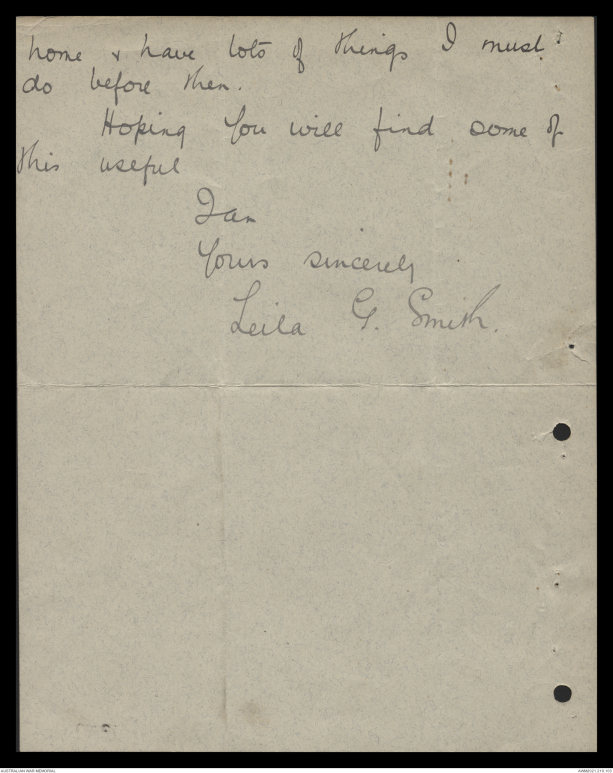 home & have lots of things I must
do before then.
Hoping you will find some of
this useful
I am
Yours sincerely
Leila G. Smith.
AUSTRALIAN WAR MEMORIAL